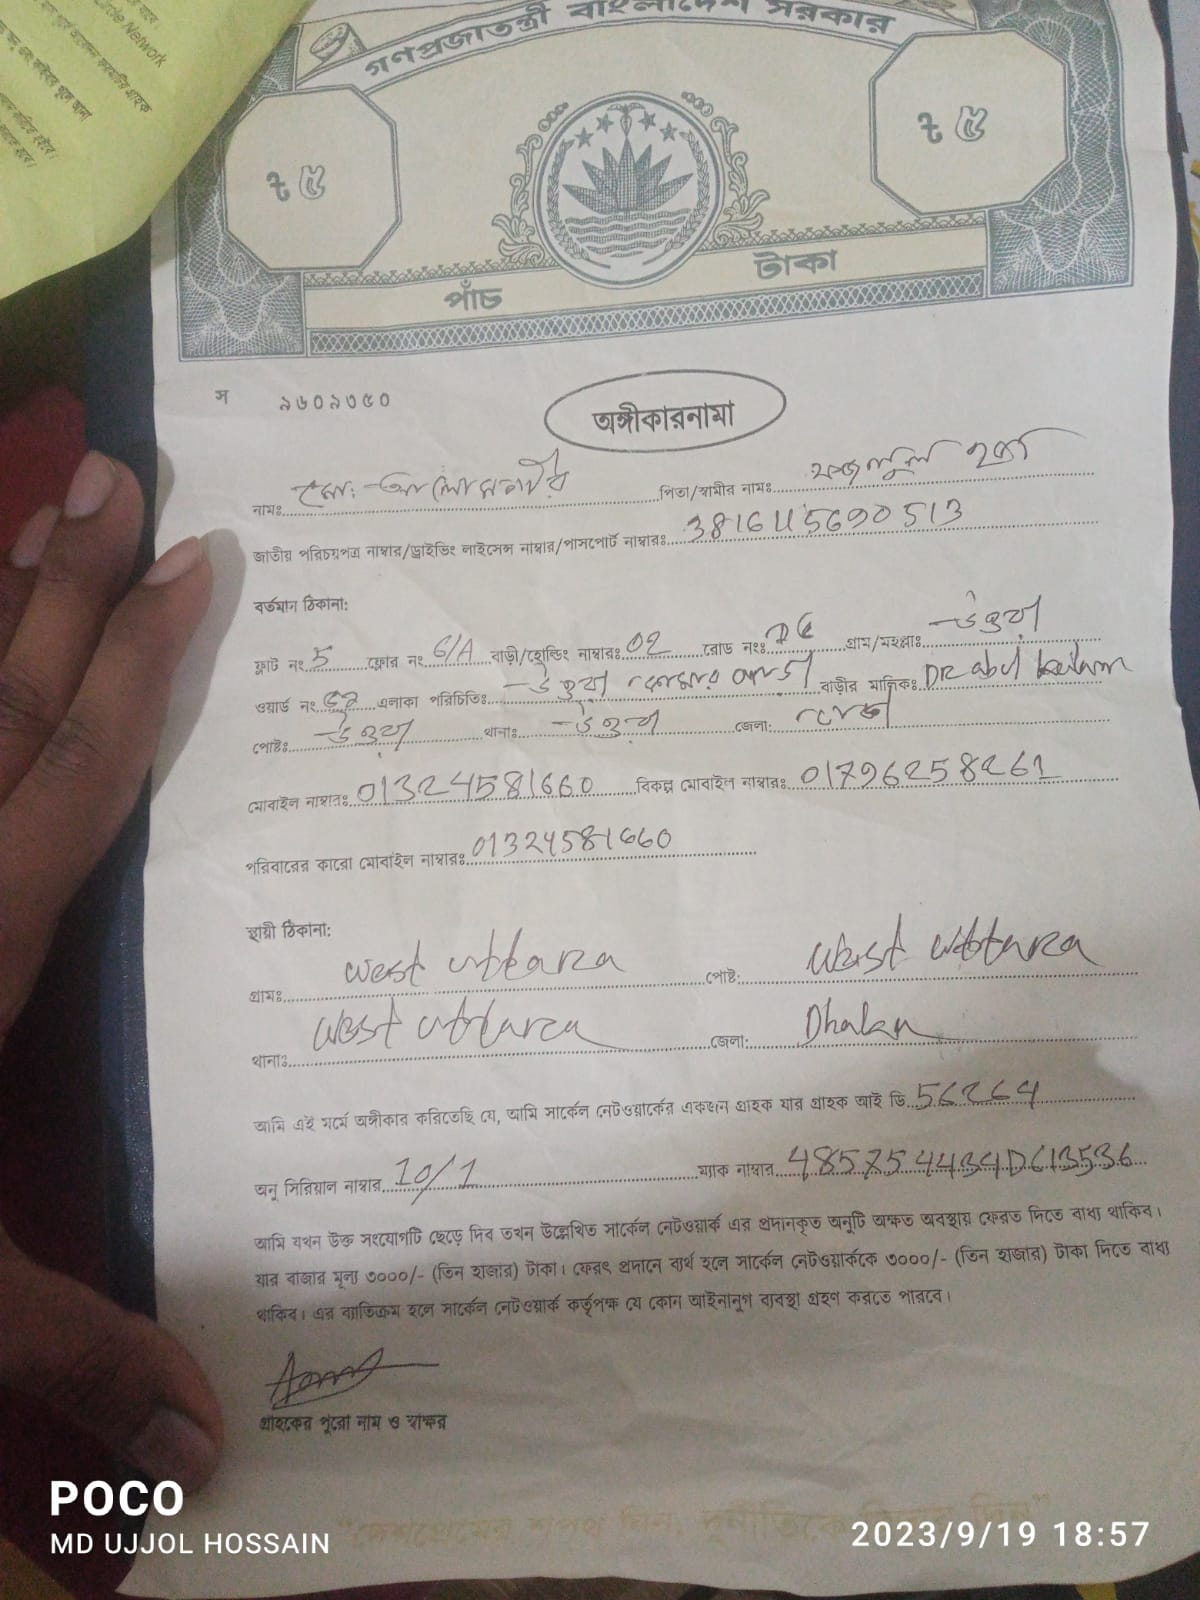 গণপ্রজাতন্ত্রী বাংলাদেশ সরকার
৳ ৫
৳ ৫
পাঁচ টাকা
স ৯৬০৯৩৫০
অঙ্গীকারনামা
নামঃ মোঃ আলমগীর পিতা/স্বামীর নামঃ ফজলুল হক
জাতীয় পরিচয়পত্র নাম্বার/ড্রাইভিং লাইসেন্স নাম্বার/পাসপোর্ট নাম্বারঃ
বর্তমান ঠিকানা:
ফ্লাট নং 5 ফ্লোর নং 6/A বাড়ী/হোল্ডিং নাম্বারঃ 02 রোড নংঃ গ্রাম/মহল্লাঃ
ওয়ার্ড নং এলাকা পরিচিতিঃ বাড়ীর মালিকঃ DR abul kalam
পোষ্টঃ থানাঃ জেলা:
মোবাইল নাম্বারঃ 01324581660 বিকল্প মোবাইল নাম্বারঃ 01796258261
পরিবারের কারো মোবাইল নাম্বারঃ 01324581660
স্থায়ী ঠিকানা:
গ্রামঃ west uttara পোষ্ট: west uttara
থানাঃ west uttara জেলা: Dhaka
আমি এই মর্মে অঙ্গীকার করিতেছি যে, আমি সার্কেল নেটওয়ার্কের একজন গ্রাহক যার গ্রাহক আই ডি 56264
অনু সিরিয়াল নাম্বার 10/1 ম্যাক নাম্বার 485754434DC13536
আমি যখন উক্ত সংযোগটি ছেড়ে দিব তখন উল্লেখিত সার্কেল নেটওয়ার্ক এর প্রদানকৃত অনুটি অক্ষত অবস্থায় ফেরত দিতে বাধ্য থাকিব।
যার বাজার মূল্য ৩০০০/- (তিন হাজার) টাকা। ফেরৎ প্রদানে ব্যর্থ হলে সার্কেল নেটওয়ার্ককে ৩০০০/- (তিন হাজার) টাকা দিতে বাধ্য
থাকিব। এর ব্যতিক্রম হলে সার্কেল নেটওয়ার্ক কর্তৃপক্ষ যে কোন আইনানুগ ব্যবস্থা গ্রহণ করতে পারবে।
গ্রাহকের পুরো নাম ও স্বাক্ষর
POCO
MD UJJOL HOSSAIN
2023/9/19 18:57